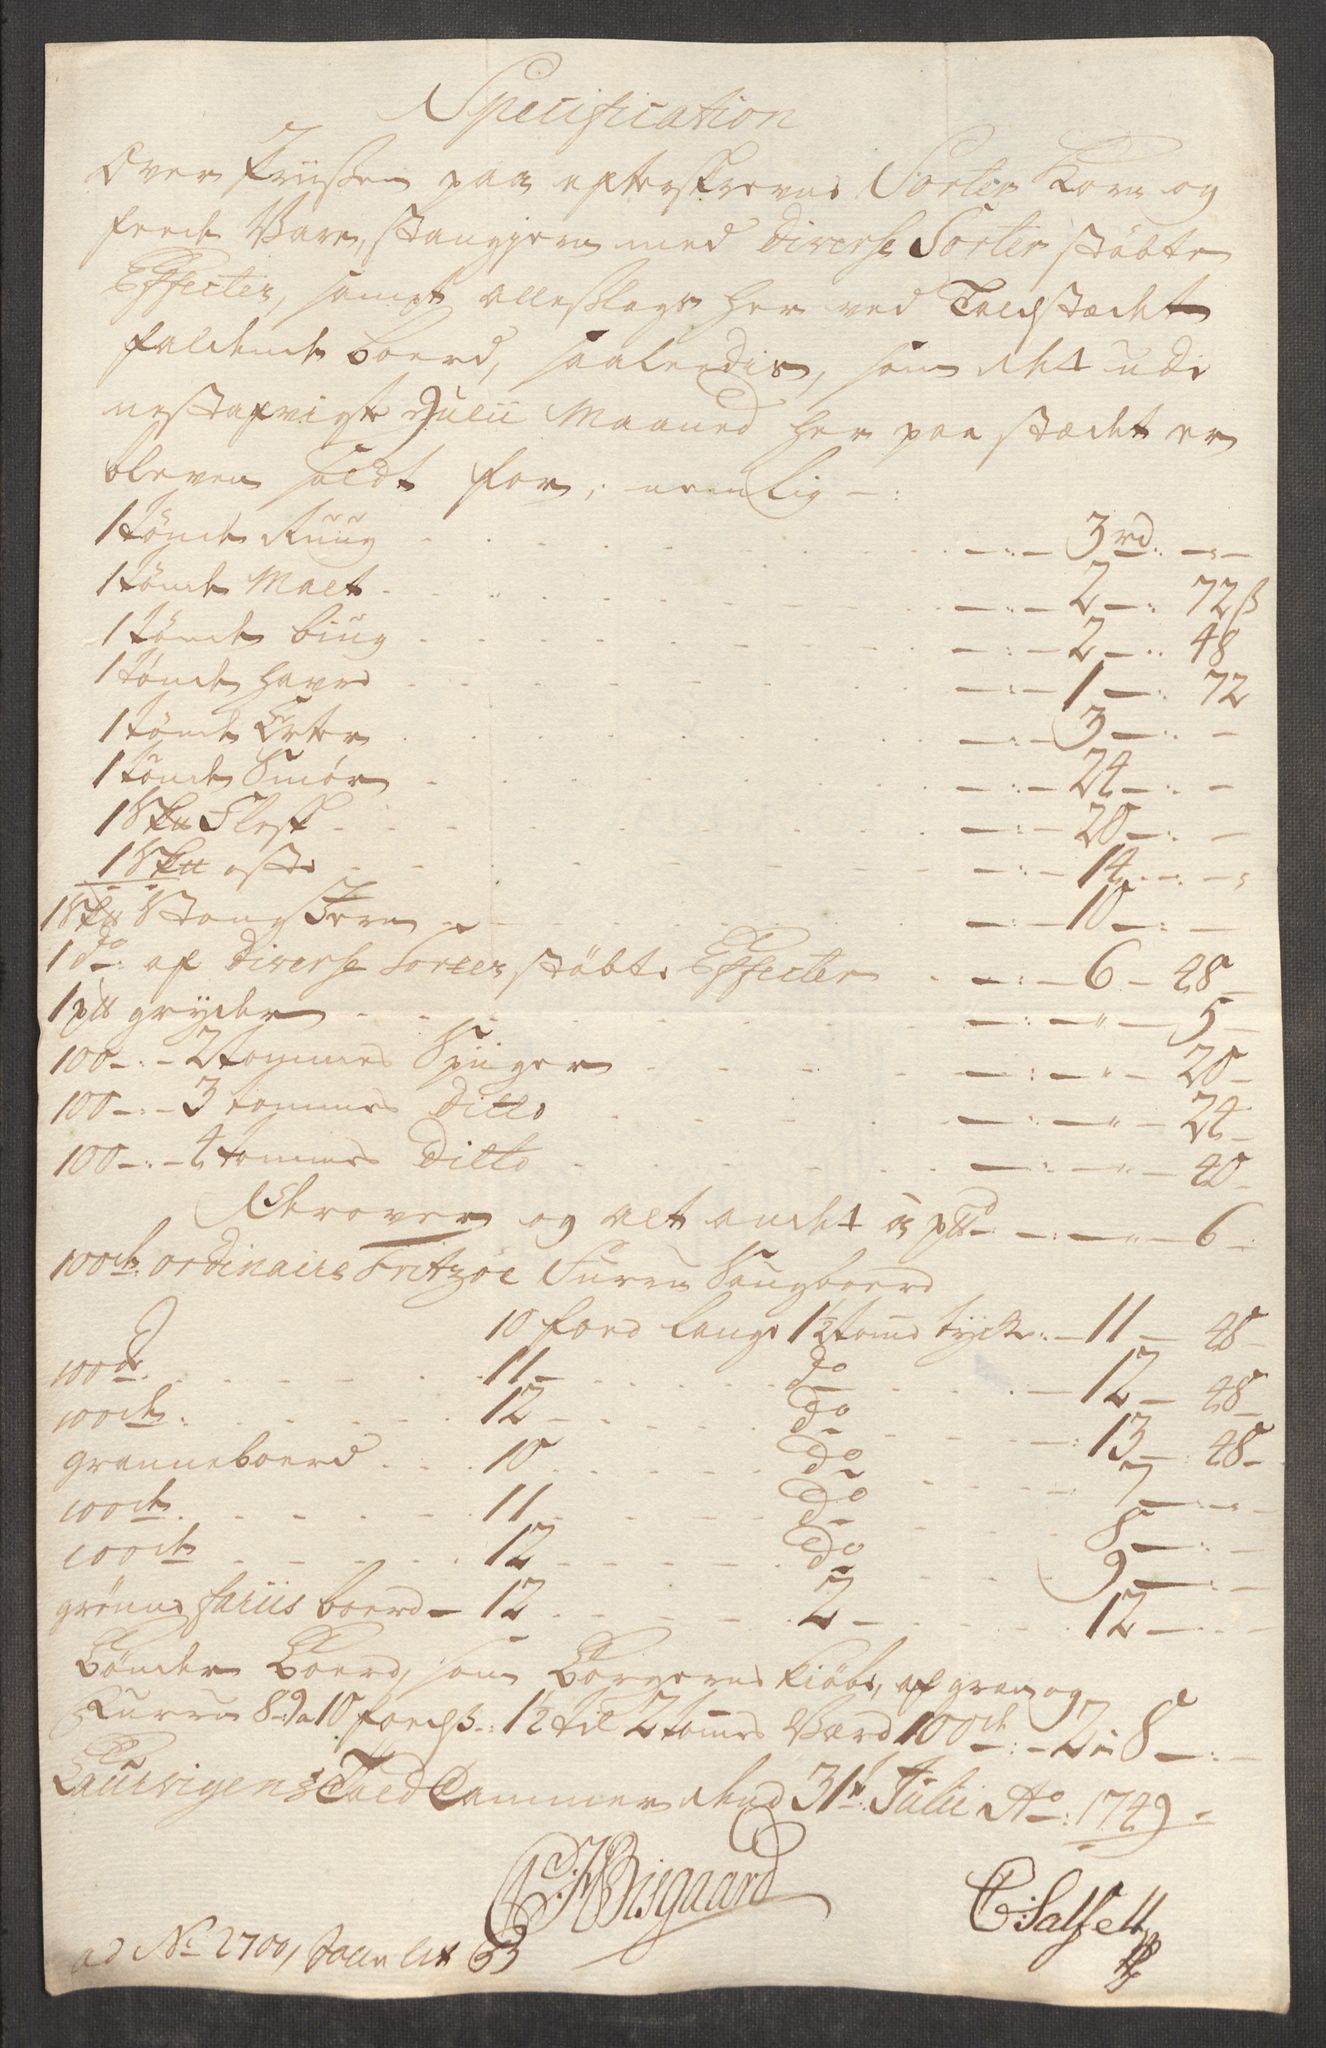 Specification
Over Prissen paa efterskrevne Sorter Korn og
feede Vare, stangjern med diverse Sorter støbte
Effecter, sampt alleslags her ved Toldstædet
faldende boerd, saaledis, som det udi
nestafvigte Julii Maaned her paa stædet er
bleven soldt for, nemlig -:
1 tønde Ruug - - - 3 rd: -
1 tønde Malt - - - 2 - 72 ß
1 tønde biug - - - 2 - 48
1 tønde havre - - - 1 - 72
1 tønde Erter - - - 3 - -
1 tønde Smør - - - 24 - -
1 Sk℔ Flesk - - - 20 - -
1 Sk℔ oste - - - 14 - -
1 Sk℔ Stang Jern - - - 10 - -
1 do: af diverse Sorter støbte Effecter - 6 - 48
1 p℔ gryder - - - " - 5 -
100 -:- 2 tommes Spiiger - - - " - 20 -
100 -:- 3 tommes ditto - - - " - 24 -
100 -:- 4 tommes Ditto - - - " - 40 -
og alt andet à p℔d - - " - 6 -
100de ordinaire Fritzøe Furru Saugboerd
10 foed lange 1½ tome tycke: - 11 - 48 -
100de - - - 11 - - - do - - - 12 - 48 -
100de - - - 12 - - - do - - - 13 - 48 -
granneboerd - - - 10 - - - do - - - 7 - -
100de - - - 11 - - - do - - - 8 - -
100de - - - 12 - - - do - - - 9 - -
grønne boerd - 12 - - - 2 - - - 12 - -
Bønder Boerd, som Borgerne kiøbe, af gran og
Furru 8-9 a 10 foeds: 1½ til 2 tomes Værd 100de: - 2 à 8 -:-
Laurvigens Told Cammer dend 31te Julii Ao: 1749 -
CF Bisgaard
C: Salfelt
ad No 2700,